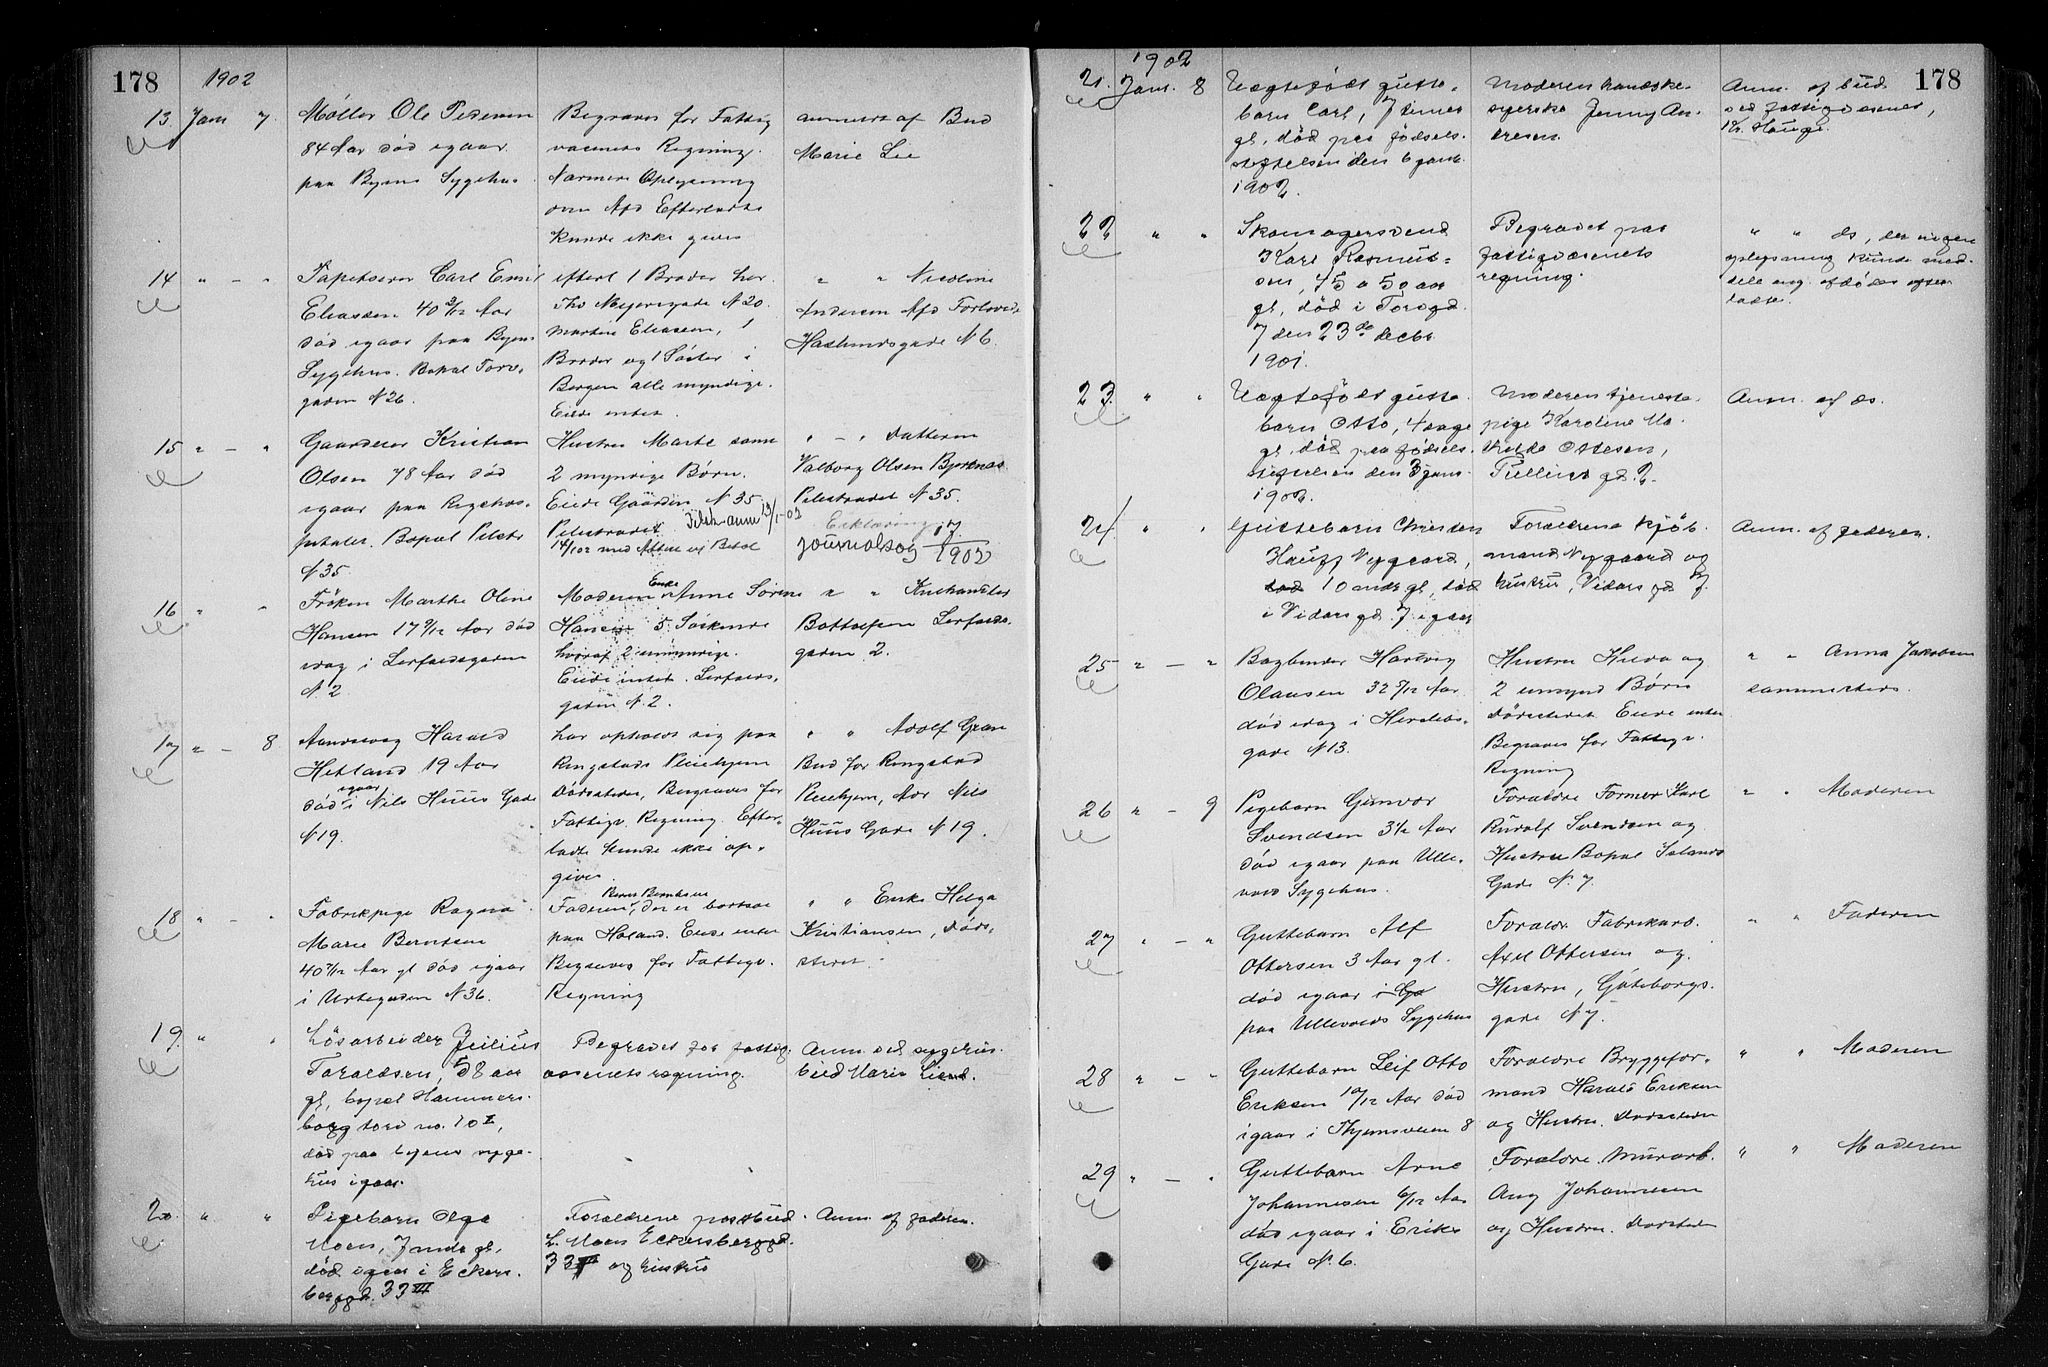 178
1902
13 Jan 7. Møller Ole Pedersen
84 Aar død igaar
paa Byens Sygehus
Begraves for Fattig
væsenets Regning.
Nærmere Oplysning
om Afd Efterladte
kunde ikke gives
anmeldt af Bud
Marie Lie
14 " - " Tapetserer Carl Emil
Eliassen 40 2/12 Aar
død igaar paa Byens
Sygehus. Bopæl Torv-
gaden N 26.
efterl 1 Broder her
Ths Meyersgade N 20.
Martin Eliassen, 1
Broder og 1 Søster i
Bergen alle myndige.
Eiede intet.
" " Nicoline
Andersen Afd Forlovede
Hausmansgade N 6.
15 " - " Gaardeier Kristian
Olsen 78 Aar død
igaar paa Rigshos-
pitalet. Bopæl Pilestr
N 35
Hustru Marte samt
2 myndige Børn.
Eiede Gaarden N 35
Pilestrædet
" - " Datteren
Valborg Olsen
Pilestrædet N 35.
Erklæring
journalbog 17/1902
16 " " Frøken Marthe Oline
Hansen 17 9/12 Aar død
idag i Lerfaldsgaden
N. 2
Moderen Enke Anne Sørine
Hansen 5 Søskende
hvoraf 2 umyndige.
Eiede intet. Lerfalds-
gaden N. 2.
" " Kulhandler
Bottolfsen Lerfalds-
gaden 2.
17 " - 8 Aandssvag Harald
Hetland 19 Aar
død igaar i Nils Huus Gade
N 19.
har opholdt sig paa
Ringstads Pleiehjem
Dødsstedet, Begraves for
Fattigv. Regning. Efter-
ladte kunde ikke op-
gives.
" " Adolf Gran
Bud for Ringstad
Pleiehjem, Adr Nils
Huus Gade N 19.
18 " - " Fabrikpige Ragna
Marie Berntsen
40 7/12 Aar gl død igaar
i Urtegaden N 36.
Faderen, Bernt Berntsen der er bortsat
paa Høland. Eiede intet
Begraves for Fattigv.
Regning
" " Enke Helga
Kristiansen, Døds-
stedet.
19. " " Løsarbeider Julius
Toraldsen, 58 aar
gl, bopæl Hammers-
borg torv no. 10 I,
død paa byens syge-
hus igaar.
Begravet for fattig-
væsenets regning.
Anm. ved sygehus-
bud Marie Lie.
20. " " Pigebarn Olga
Moen, 7 mdr gl,
død igaar i Eckers-
berggd. 33 III
Forældrene postbud
L. Moen Eckersberggd.
33 III og hustru
Anm. af faderen.
178
1902
21. Jan. 8 Uægtefødt gutte-
barn Carl, 7 timer
gl, død paa fødsels-
stiftelsen den 6 janr.
1902.
Moderen handske-
syerske Jenny An-
dresen.
Anm. af bud
ved fattigvæsenet,
Kr. Hauge.
22 " " Skomagersvend
Karl Rasmus-
sen, 45 a 50 aar
gl, død i Torvgd.
7 den 23de decbr
1901.
Begravet paa
fattigvæsenets
regning.
" " ds, der ingen
oplysning kunde med-
dele ang. afdødes efter-
ladte.
23. " " Uægtefødt gutte-
barn Otto, 4 dage
gl, død paa fødsels-
stiftelsen den 3 janr.
1902.
Moderen tjeneste-
pige Karoline Ma-
thilde Ottesen,
Tullins gd. 2.
Anm. af ds.
24. " " Guttebarn Christen
Hauff Nygaard,
10 mdr gl, død
i Vidars gd. 7 igaar
Forældrene kjøb-
mand Nygaard og
hustru, Vidars gd 7.
Anm. af faderen.
25 " - " Bogbinder Hartvig
Olausen 32 5/12 Aar
død idag i Herslebs-
gade N 13.
Hustru Hulda og
2 umynd Børn
Dødsstedet Eiede intet
Begraves for Fattigv.
Regning
" " Anna Jakobsen
sammesteds.
26 " - 9 Pigebarn Gunvor
Svendsen 3 1/2 Aar
død igaar paa Ulle-
vaals Sygehus.
Forældre Former Karl
Rudolf Svendsen og
Hustru Bopæl Islands
Gade N. 7.
" " Moderen
27 " - " Guttebarn Alf
Ottersen 3 Aar gl.
død igaar i Gø
paa Ullevaals Sygehus
Forældr. Fabrikarb.
Axel Ottersen og
Hustru, Gøteborgs-
gade N 7.
" " Faderen
28 " - " Guttebarn Leif Otto
Eriksen 10/12 Aar død
igaar i Thjemsveien 8
Forældre Bryggefor-
mand Harald Eriksen
og Hustru. Dødsstedet
" " Moderen
29 " - " Guttebarn Arne
Johannesen 6/12 Aar
død igaar i Eriks
Gade N. 6.
Forældre. Murarb.
Aug Johannesen
og Hustru. Dødsted
" " Moderen